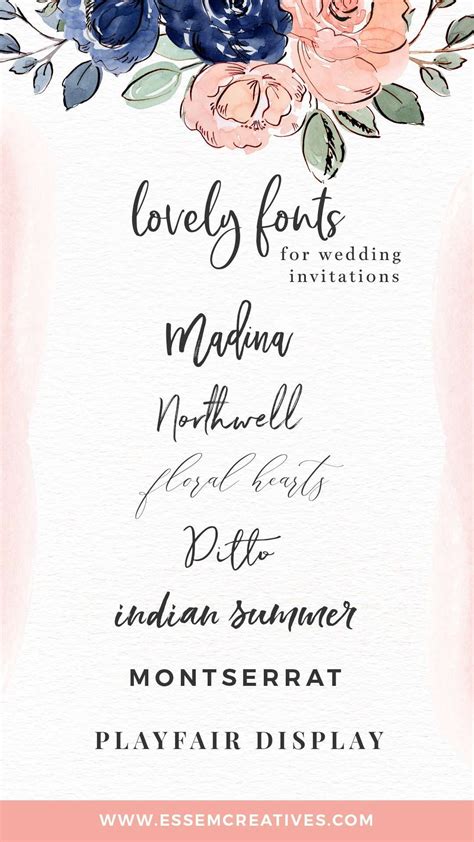 lovely fonts
for wedding
invitations
Madina
Northwell
floral hearts
Ditto
indian summer
MONTSERRAT
PLAYFAIR DISPLAY
WWW.ESSEMCREATIVES.COM